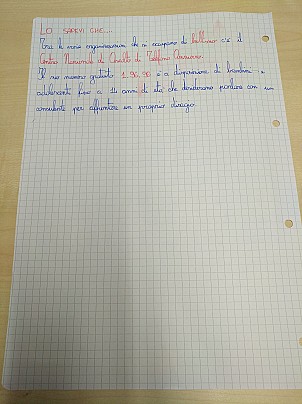 LO SAPEVI CHE...
Tra le varie organizzazioni che si occupano di bullismo c'è il
Centro Nazionale di Ascolto di Telefono Azzurro.
Il suo numero gratuito 1.96.96 è a disposizione di bambini e
adolescenti fino a 14 anni di età che desiderano parlare con un
consulente per affrontare un proprio disagio.